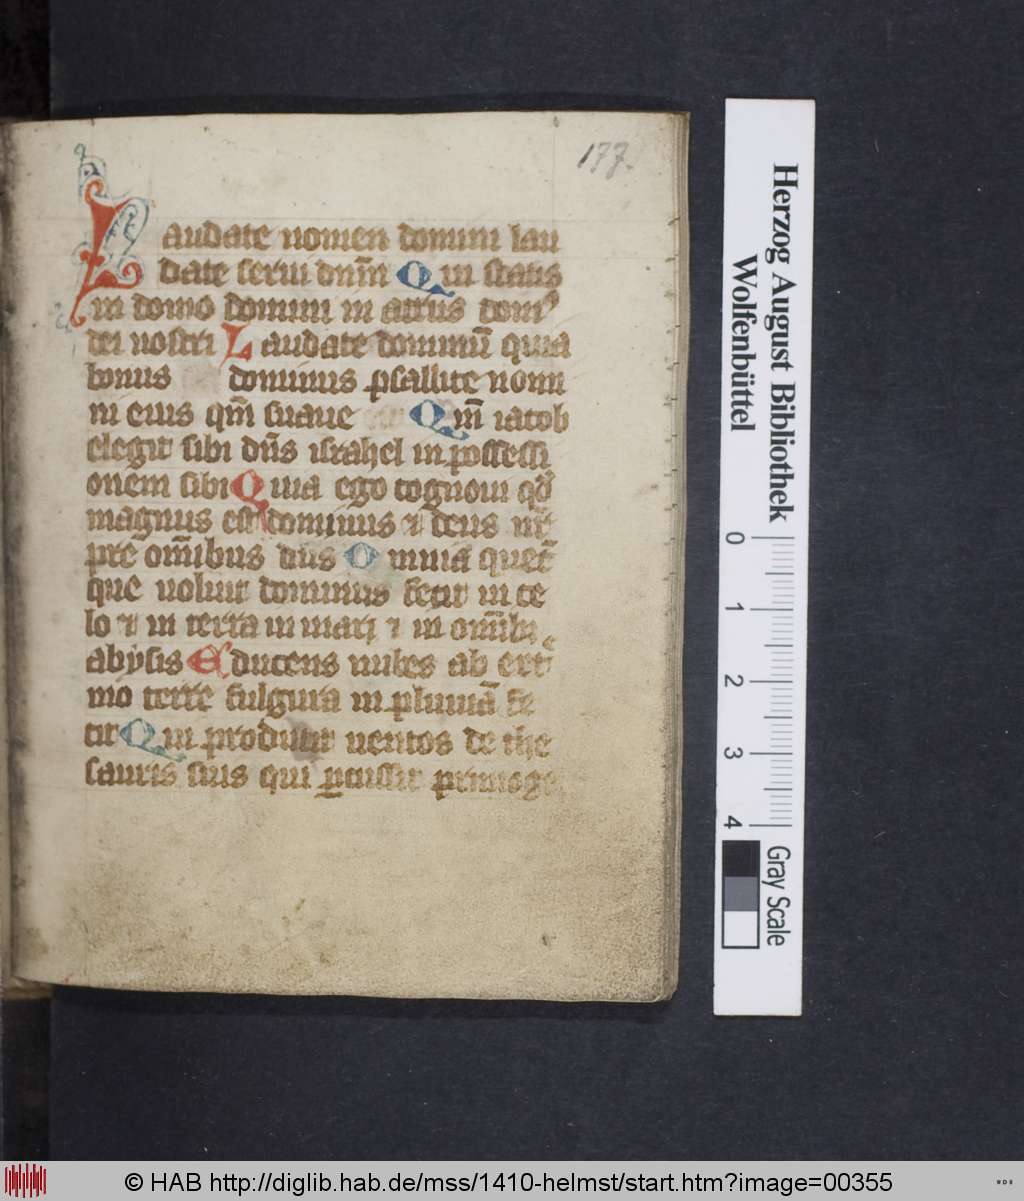 177.
Laudate nomen domini lau
date serui dnm̄ Qui statis
in domo domini in atriis domꝰ
dei nostri Laudate dominū quia
bonus dominus psallite nomi
ni eius qm̄ suaue Qm̄ iacob
elegit sibi dn̄s israhel in possessi
onem sibi Quia ego cognoui qd̓
magnus est dominus ⁊ deus nr̄
pre om̄ibus dn̄s Omnia quec̄
que uoluit dominus fecit in ce
lo ⁊ in terra in mari ⁊ in om̄ibꝫ
abysis Educens nubes ab extr
mo terre fulgura in pluuiā fe
cit Qui producit uentos de the
sauris suis qui ꝑcussit primoge
Herzog August Bibliothek
Wolfenbüttel
0 1 2 3 4
Gray Scale
© HAB http://diglib.hab.de/mss/1410-helmst/start.htm?image=00355